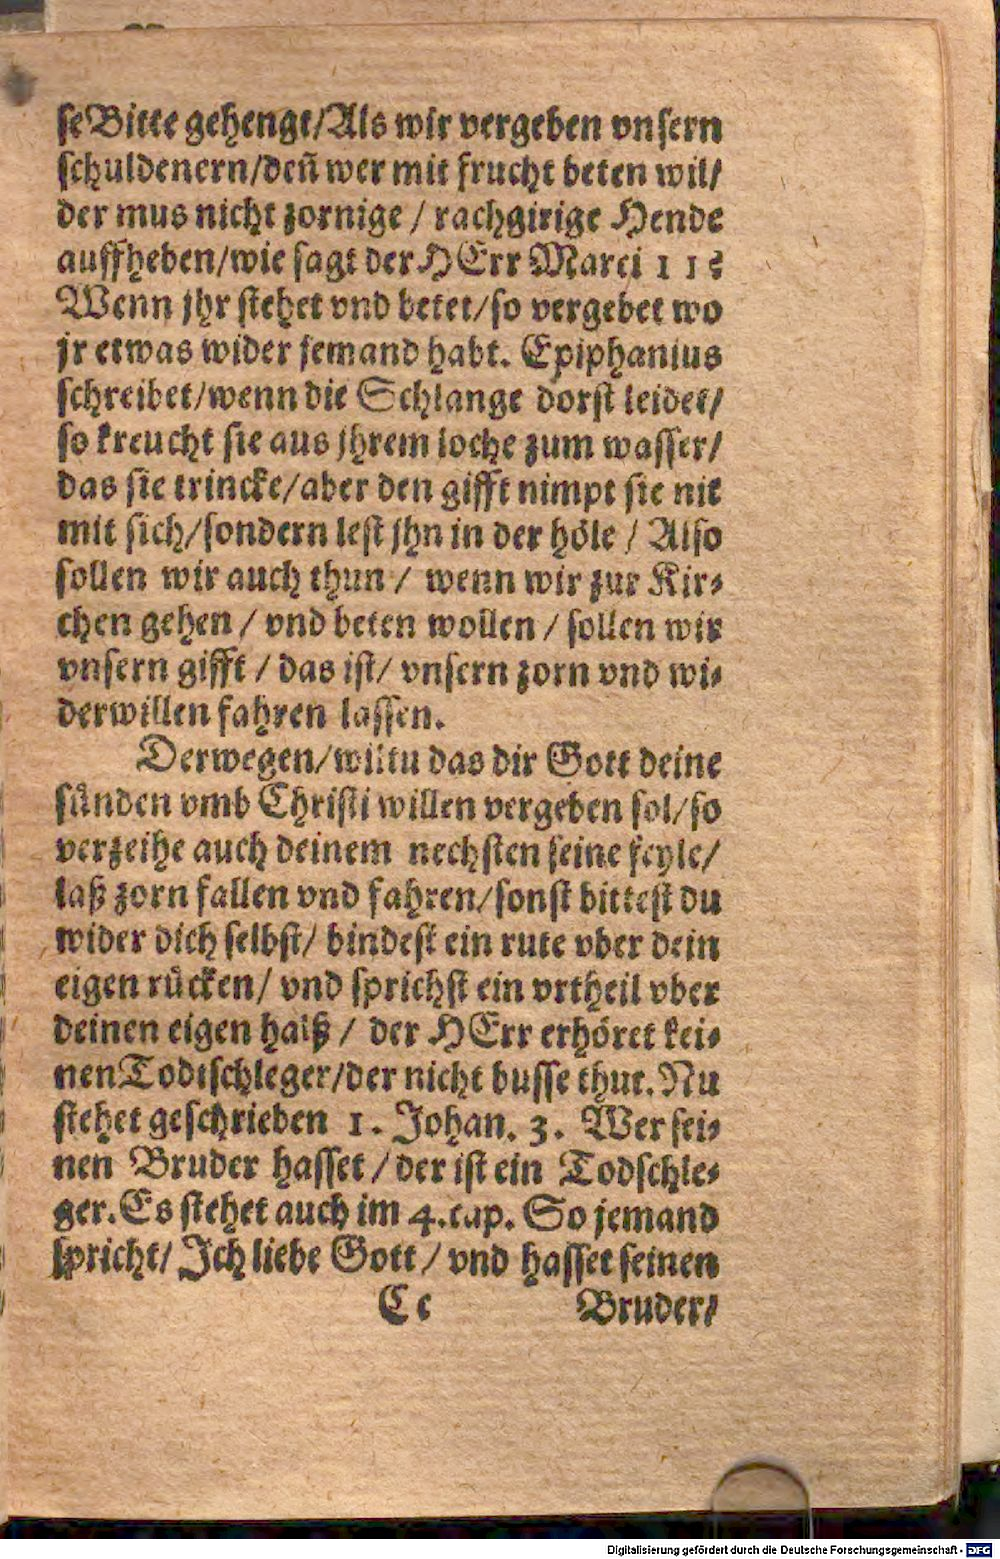 se Bitte gehengt/Als wir vergeben vnsern
schuldenern/deñ wer mit frucht beten wil/
der mus nicht zornige / rachgirige Hende
auffheben/wie sagt der HErr Marci 11:
Wenn jhr stehet vnd betet/so vergebet wo
jr etwas wider jemand habt. Epiphanius
schreibet/wenn die Schlange dorst leidet/
so kreucht sie aus jhrem loche zum wasser/
das sie trincke/aber den gifft nimpt sie nit
mit sich/sondern lest jhn in der höle / Also
sollen wir auch thun / wenn wir zur Kir-
chen gehen / vnd beten wollen / sollen wir
vnsern gifft / das ist/ vnsern zorn vnd wi-
derwillen fahren lassen.
Derwegen/wiltu das dir Gott deine
sünden vmb Christi willen vergeben sol/so
verzeihe auch deinem nechsten seine feyle/
laß zorn fallen vnd fahren/sonst bittest du
wider dich selbst/ bindest ein rute vber dein
eigen rücken/ vnd sprichst ein vrtheil vber
deinen eigen halß / der HErr erhöret kei-
nen Todtschleger/der nicht busse thut. Nu
stehet geschrieben 1. Johan. 3. Wer sei-
nen Bruder hasset / der ist ein Todschle-
ger. Es stehet auch im 4. cap. So jemand
spricht/ Ich liebe Gott / vnd hasset seinen
Cc Bruder/
Digitalisierung gefördert durch die Deutsche Forschungsgemeinschaft - DFG